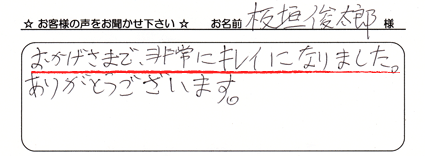 ☆ お客様の声をお聞かせ下さい ☆ お名前 板垣俊太郎 様
おかげさまで、非常にキレイになりました。
ありがとうございます。